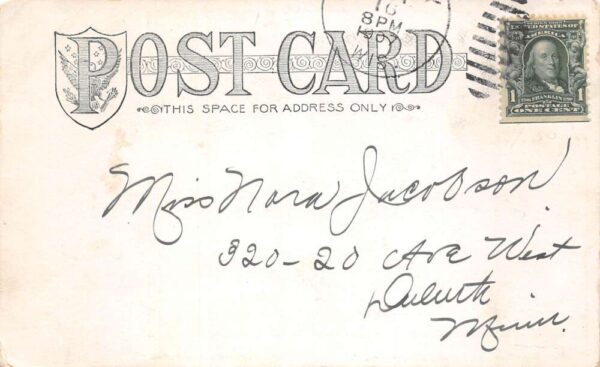 POST CARD
THIS SPACE FOR ADDRESS ONLY
16
8 PM
WIS
UNITED STATES OF
AMERICA
1 FRANKLIN 1
POSTAGE
ONE CENT
Miss Nora Jacobson
320-20 Ave West
Duluth
Minn.